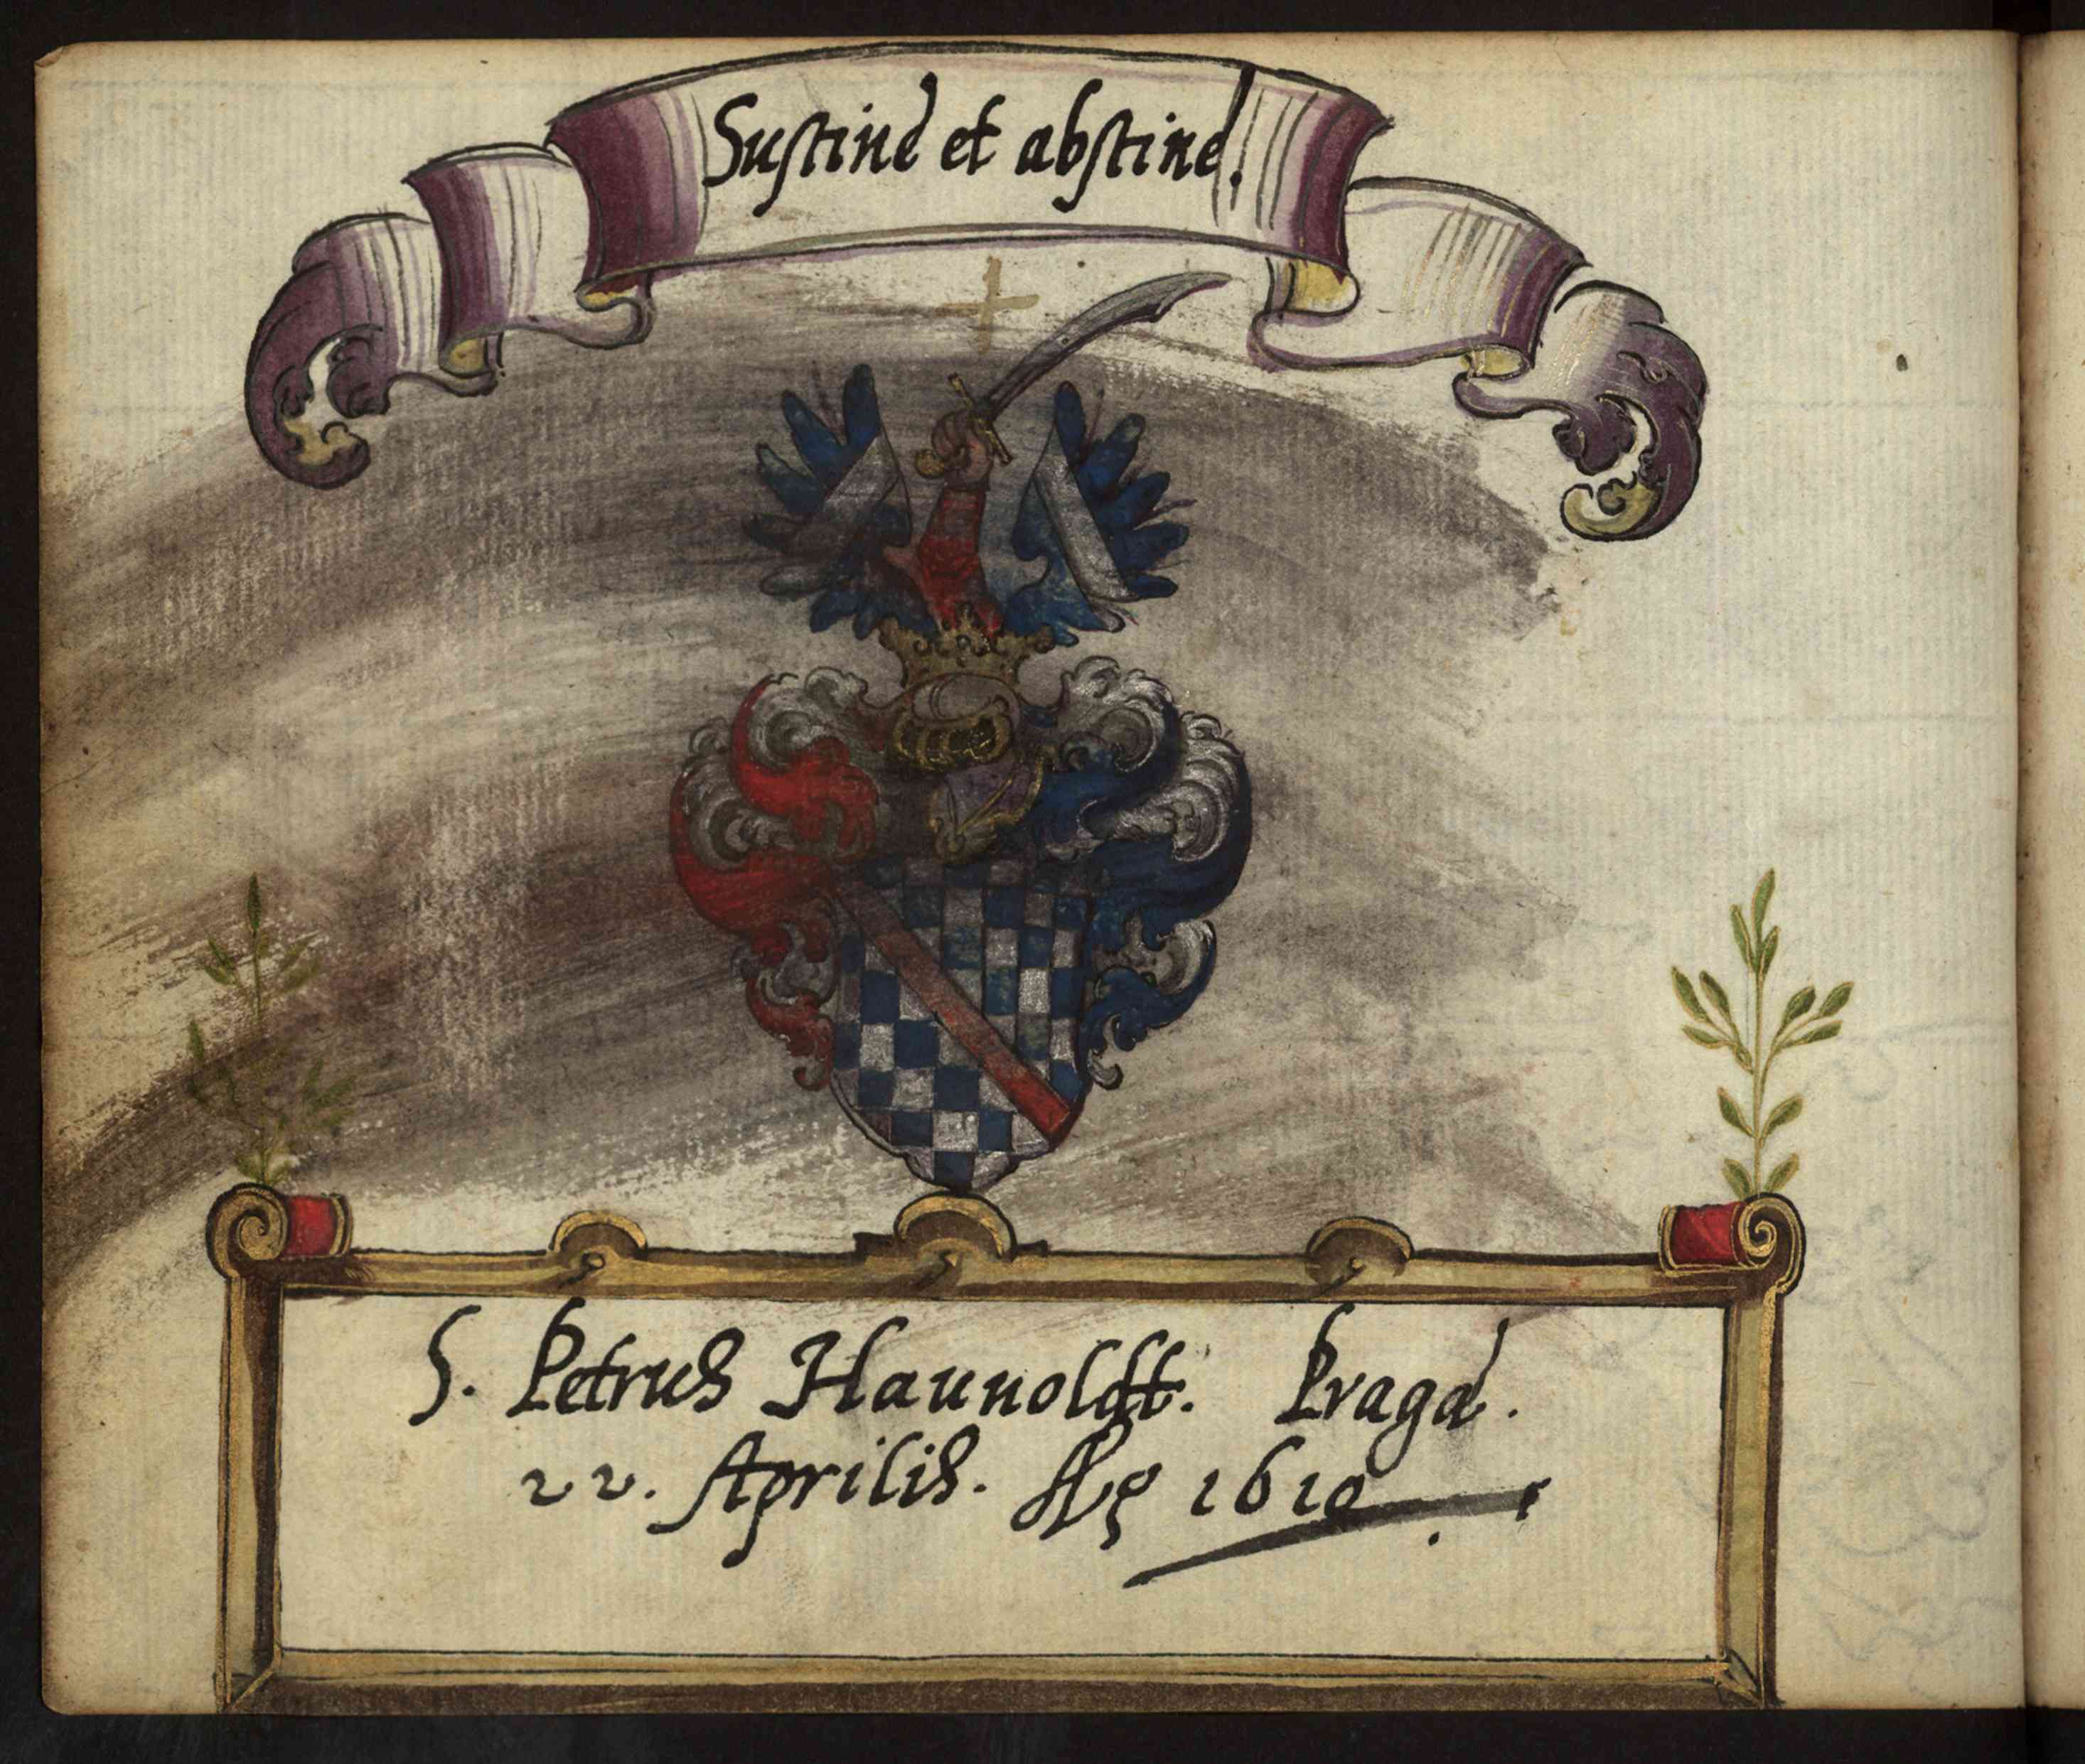 Sustine et abstine!
S. Petrus Haunoldt. Pragae.
22. Aprilis. Ao 1610.